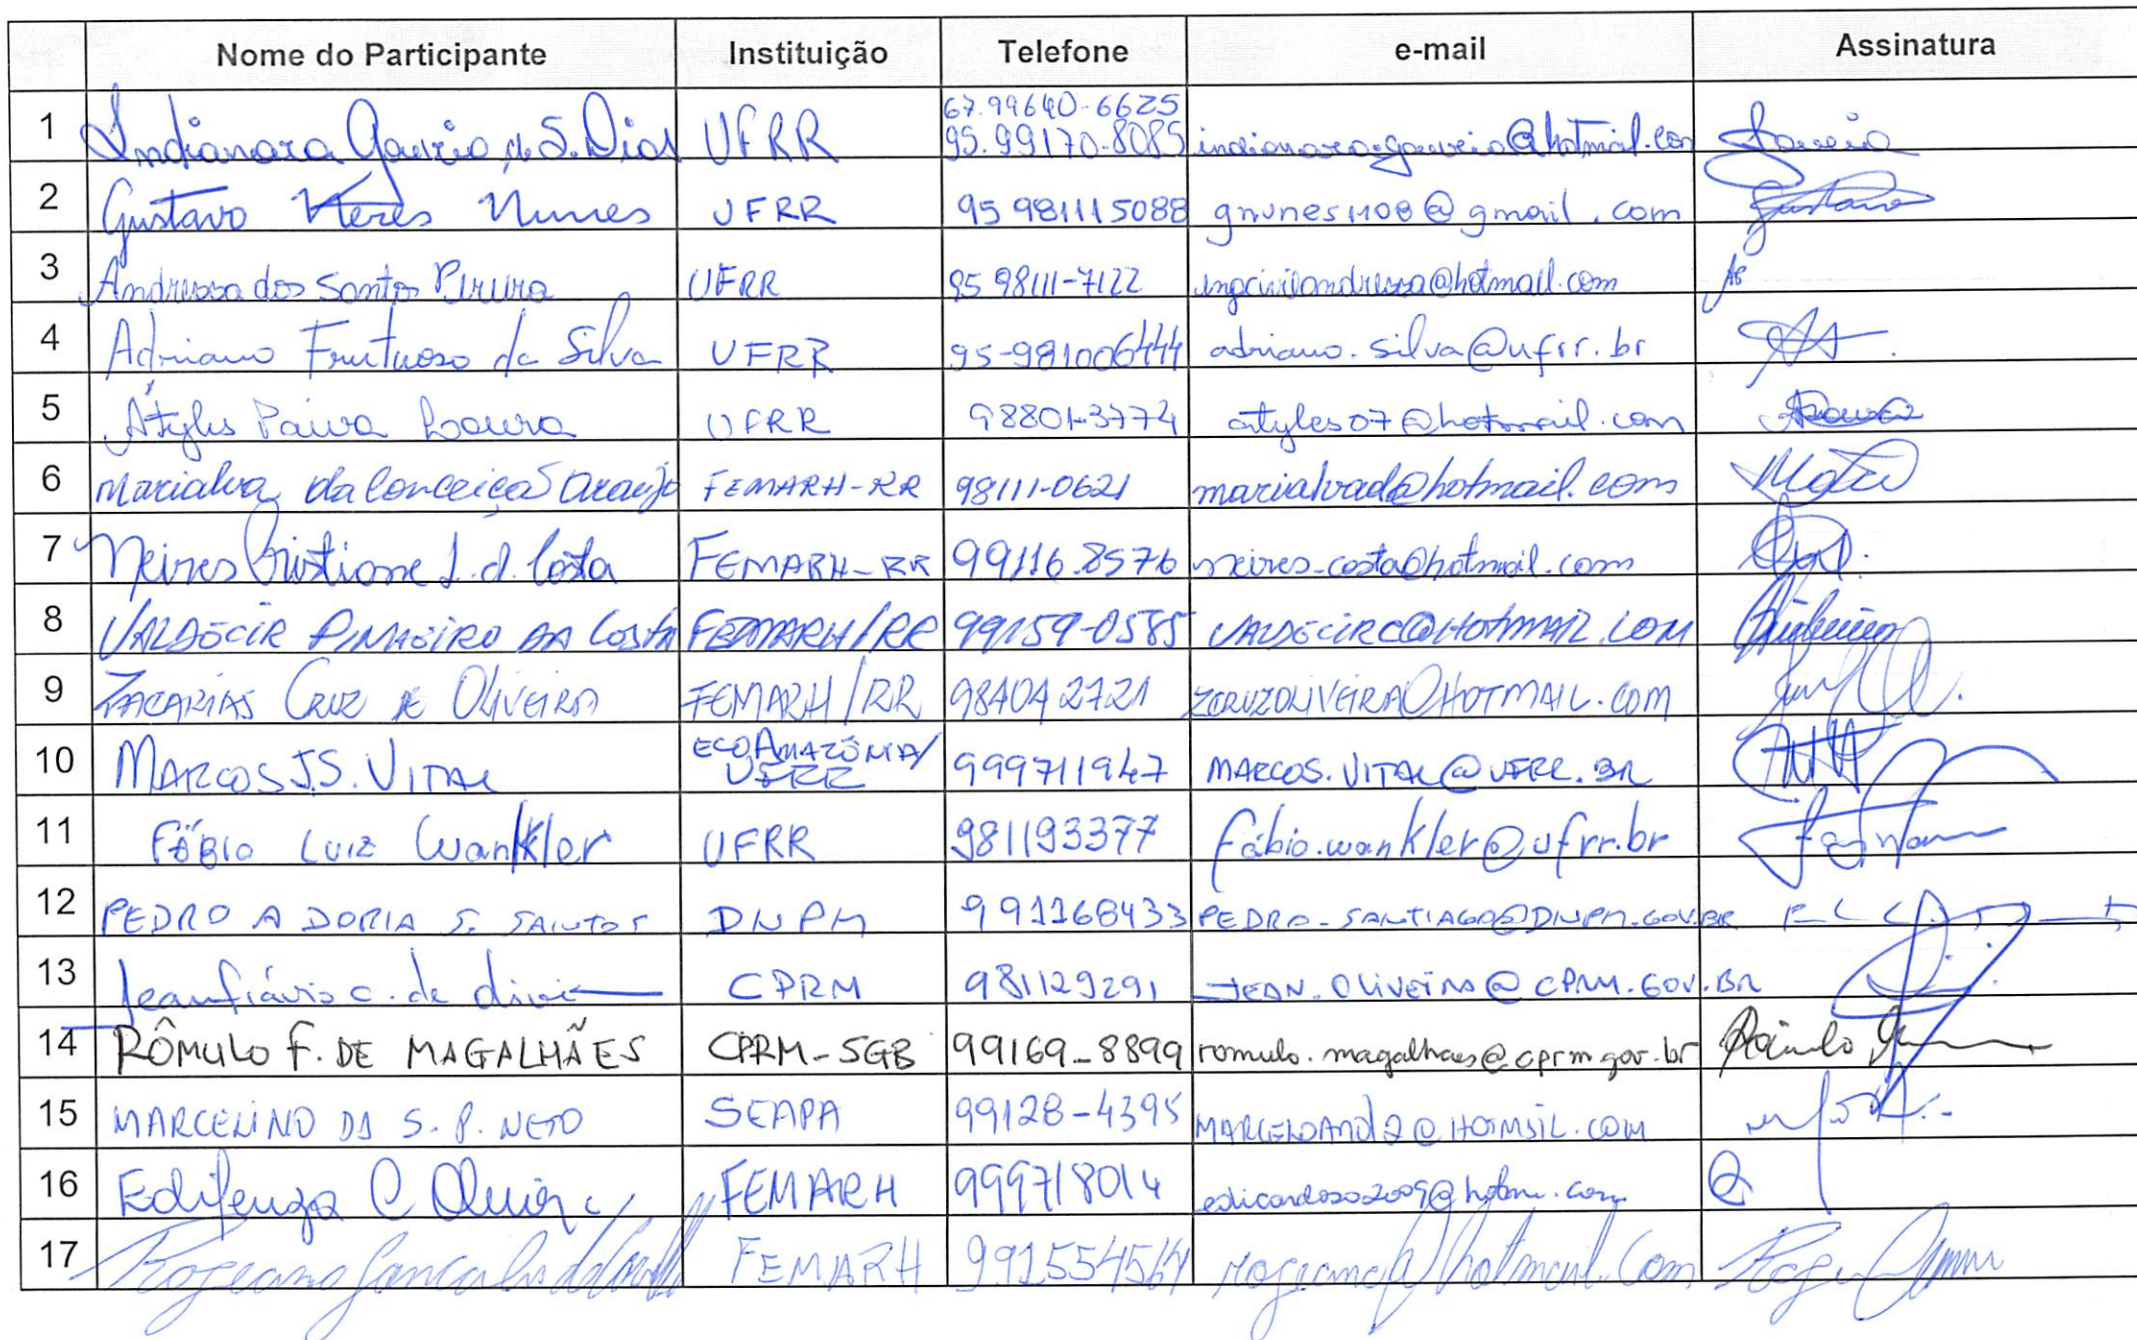 Nome do Participante Instituição Telefone e-mail Assinatura
1 Indianara Gouveia de S. Dias UFRR 67.99640-6625 95.99170-8085 indianara-gouveia@hotmail.com Gouveia
2 Gustavo Keres Nunes UFRR 95 981115088 gnunes1108@gmail.com Gustavo
3 Andressa dos Santos Pereira UFRR 95 98111-7122 engcivilandressa@hotmail.com
4 Adriano Frutuoso da Silva UFRR 95-981006444 adriano.silva@ufrr.br
5 Átyles Paiva UFRR 98801-3774 atyles07@hotmail.com
6 Marialva da Conceição Araújo FEMARH-RR 98111-0621 marialvad@hotmail.com
7 Neires Cristiane S. d. Costa FEMARH-RR 99116.8576 neires-costa@hotmail.com
8 VALDECIR PINHEIRO DA COSTA FEMARH/RR 99159-0585 VALDECIRC@HOTMAIL.COM
9 ZACARIAS CRUZ DE OLIVEIRA FEMARH/RR 984042721 ZCRUZOLIVEIRA@HOTMAIL.COM
10 MARCOS J.S. VITAL ECOAMAZÔNIA/ UFRR 999711947 MARCOS.VITAL@UFRR.BR
11 FÁBIO LUIZ Wankler UFRR 981193377 fábio.wankler@ufrr.br
12 PEDRO A DORIA S. SANTOS DNPM 991168433 PEDRO-SANTIAGO@DNPM.GOV.BR
13 Jean flávio c. de CPRM 981129291 JEAN.OLIVEIRA@CPRM.GOV.BR
14 RÔMULO F. DE MAGALHÃES CPRM-SGB 99169-8899 romulo.magalhaes@cprm.gov.br Rômulo
15 MARCELINO DA S. P. NETO SEAPA 99128-4395 @HOTMAIL.COM
16 C FEMARH 999718014 edicardoso2009@hotm.com
17 Rogeana Goncalves FEMARH 991554564 rogeana@hotmail.com